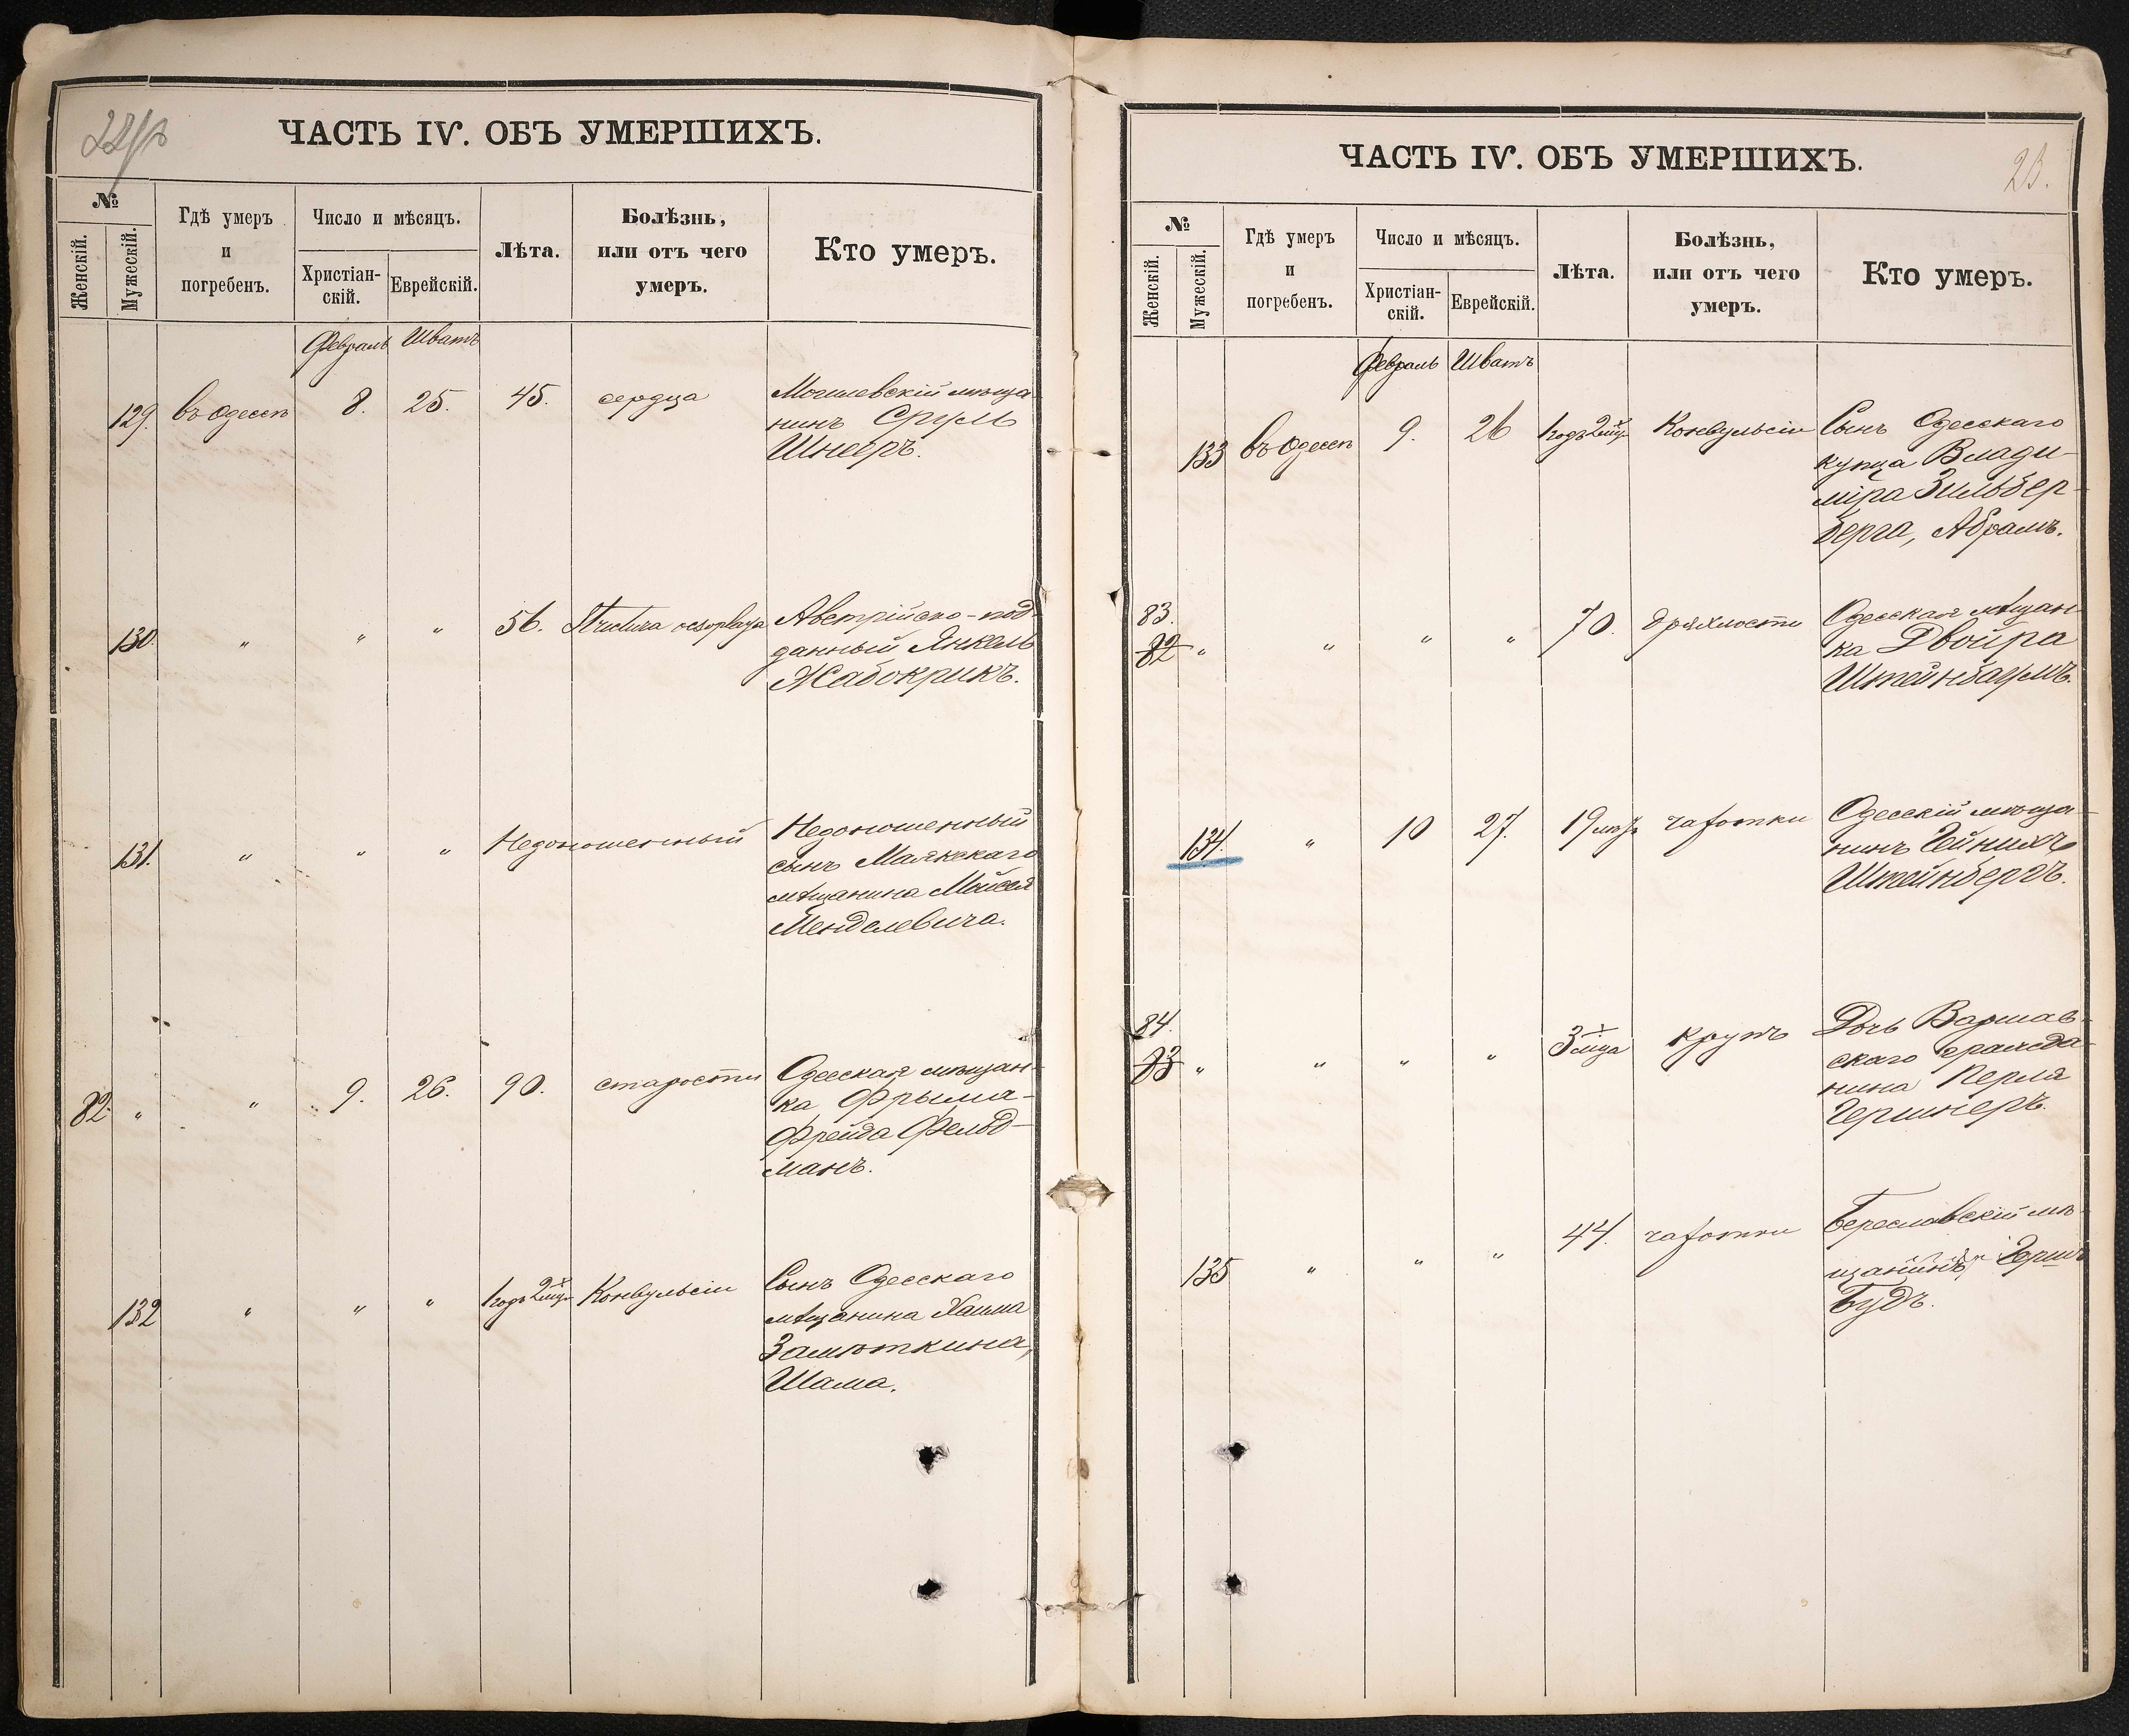 ЧАСТЬ IV. ОБЪ УМЕРШИХЪ.
№
Женскій.
Мужескій.
Гдѣ умеръ
и
погребенъ.
Число и мѣсяцъ.
Христіан-
скій.
Еврейскій.
Лѣта.
Болѣзнь,
или отъ чего
умеръ.
Кто умеръ.
Февраль Шватъ
129. въ Одессѣ 8. 25. 45. сердца Могилевскій мѣща-
нинъ Сруль
Шнееръ.
130. " " " 56. Strictura oesophaga Австрійско-под-
данный Янкель
Жабокрикъ.
131. " " " Недоношенный Недоношенный
сынъ Маякскаго
мѣщанина Мойсея
Менделевича.
82. " " 9. 26. 90. старости Одесская мѣщан-
ка Фрыма-
Фрейда Фельд-
манъ.
132 " " " 1 годъ 2 мца Конвульсіи Сынъ Одесскаго
мѣщанина Хаима
Замѣткина,
Шама.
ЧАСТЬ IV. ОБЪ УМЕРШИХЪ.
23.
№
Женскій.
Мужескій.
Гдѣ умеръ
и
погребенъ.
Число и мѣсяцъ.
Христіан-
скій.
Еврейскій.
Лѣта.
Болѣзнь,
или отъ чего
умеръ.
Кто умеръ.
Февраль Шватъ
133 въ Одессѣ 9. 26 1 годъ 2 мца Конвульсіи Сынъ Одесскаго
купца Влади-
міра Зильбер-
берга, Абрамъ.
83.
82 " " " " 70. дряхлости Одесская мѣщан-
ка Двойра
Штейнбаумъ.
134. " 10 27. 19 чахотки Одесскій мѣща-
нинъ Гейнихъ
Штейнбергъ.
84.
83 " " " " 3 мца крупъ Дочь Варшав-
скаго гражда-
нина Перля
Гершнеръ.
135 " " " 44. чахотки Бериславскій мѣ-
щанинъ Герш
Будъ.